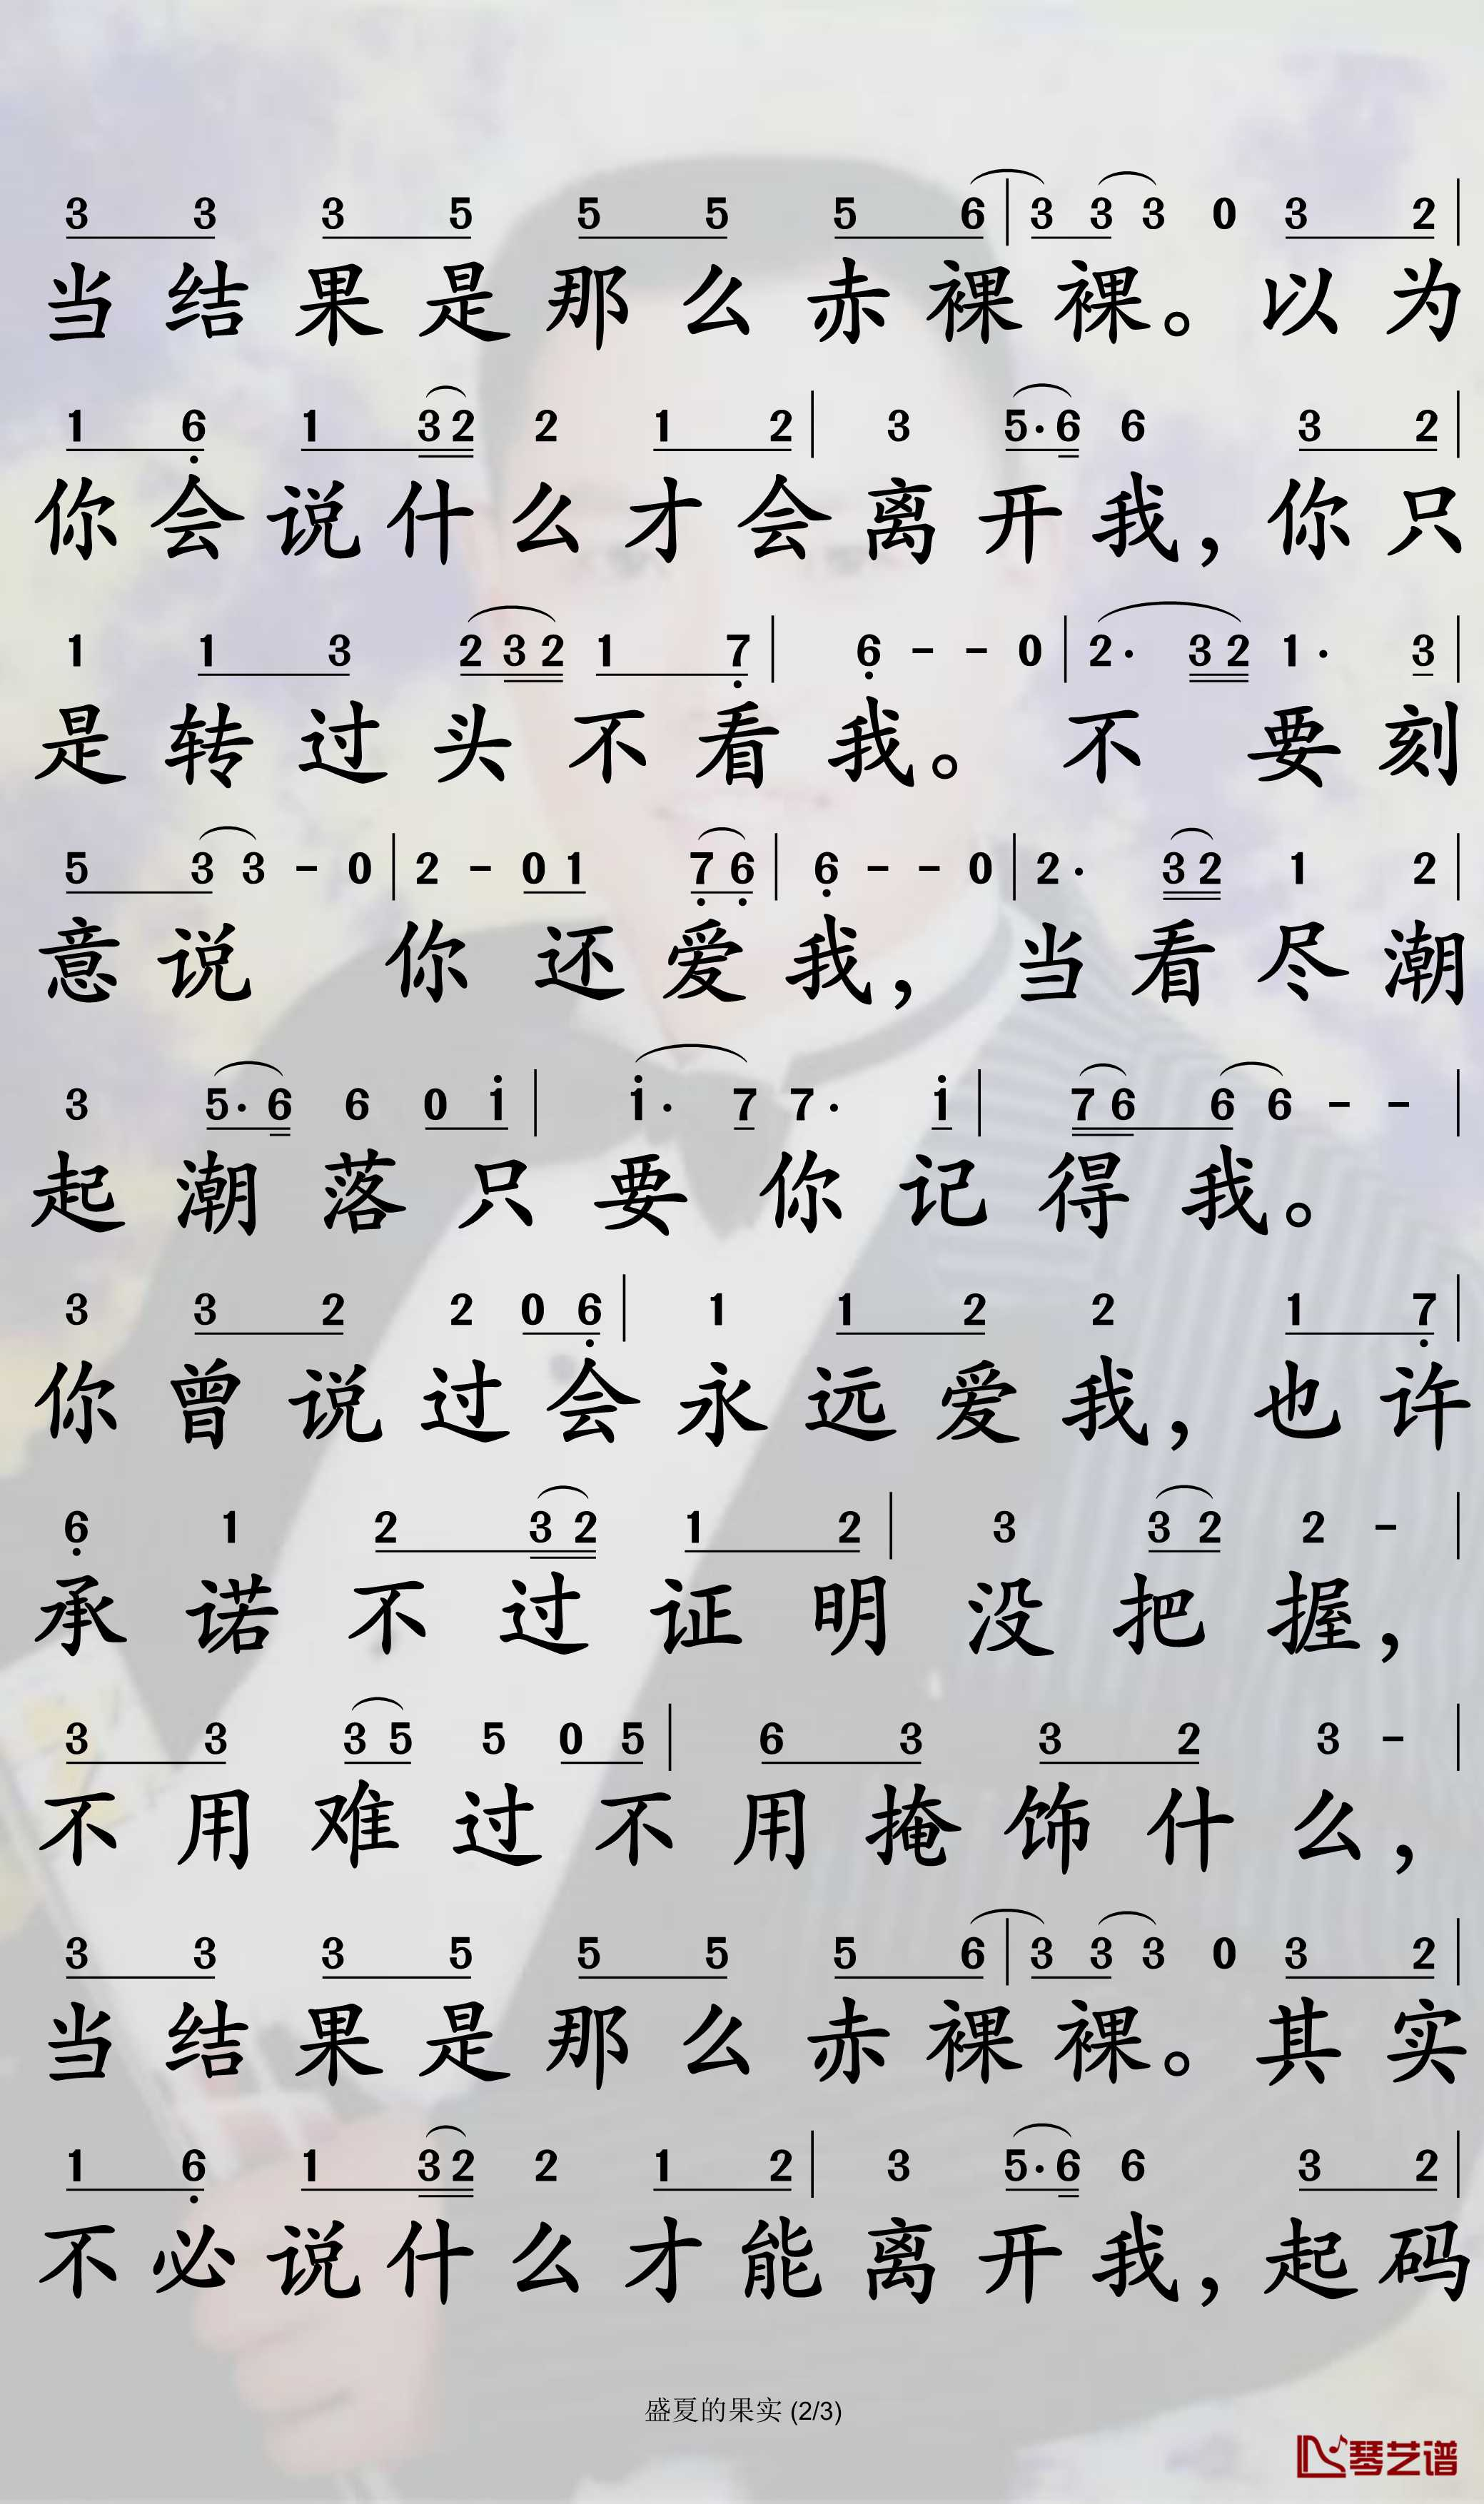 3 3 3 5 5 5 5 6 | 3 3 3 0 3 2 |
当结果是那么赤裸裸。以为
1 6 1 3 2 2 1 2 | 3 5· 6 6 3 2 |
你会说什么才会离开我，你只
1 1 3 2 3 2 1 7 | 6 - - 0 | 2· 3 2 1· 3 |
是转过头不看我。不要刻
5 3 3 - 0 | 2 - 0 1 7 6 | 6 - - 0 | 2· 3 2 1 2 |
意说 你还爱我，当看尽潮
3 5· 6 6 0 1 | 1· 7 7· 1 | 7 6 6 6 - - |
起潮落只要你记得我。
3 3 2 2 0 6 | 1 1 2 2 1 7 |
你曾说过会永远爱我，也许
6 1 2 3 2 1 2 | 3 3 2 2 - |
承诺不过证明没把握，
3 3 3 5 5 0 5 | 6 3 3 2 3 - |
不用难过不用掩饰什么，
3 3 3 5 5 5 5 6 | 3 3 3 0 3 2 |
当结果是那么赤裸裸。其实
1 6 1 3 2 2 1 2 | 3 5· 6 6 3 2 |
不必说什么才能离开我，起码
盛夏的果实 (2/3)
琴艺谱